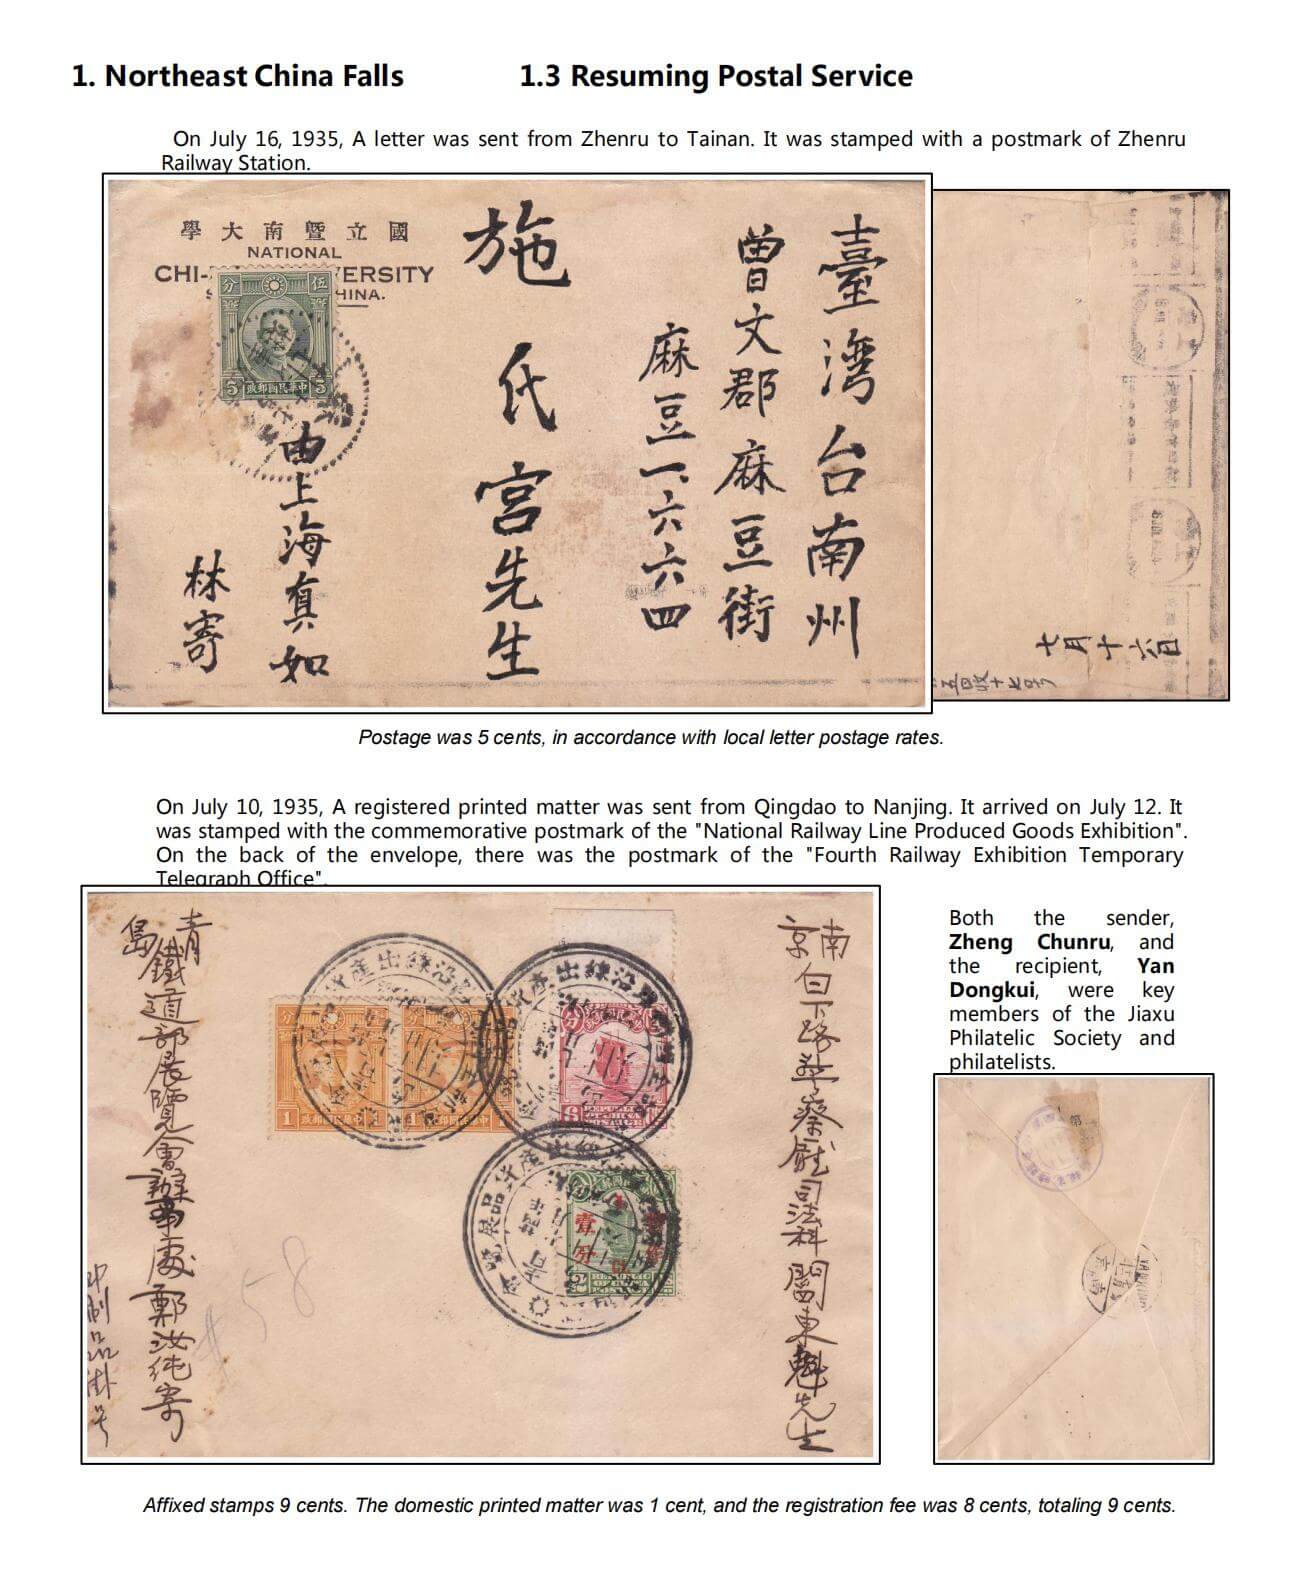 1. Northeast China Falls 1.3 Resuming Postal Service
On July 16, 1935, A letter was sent from Zhenru to Tainan. It was stamped with a postmark of Zhenru
Railway Station.
學大南暨立國
NATIONAL
CHI- ERSITY
HINA.
分 伍
5 政郵國民華中 5
臺灣台南州
曾文郡麻豆街
麻豆一、六六四
施氏宮先生
由上海真如
林寄
七月十六日
五四收十七号
Postage was 5 cents, in accordance with local letter postage rates.
On July 10, 1935, A registered printed matter was sent from Qingdao to Nanjing. It arrived on July 12. It
was stamped with the commemorative postmark of the "National Railway Line Produced Goods Exhibition".
On the back of the envelope, there was the postmark of the "Fourth Railway Exhibition Temporary
Telegraph Office".
南京
白下路 司法科
東魁先生
青島
鐵道部展覽會辦事處鄭汝純寄
印刷品掛号
58
覽展品貨產出線沿
1
6
壹分
Both the sender,
Zheng Chunru, and
the recipient, Yan
Dongkui, were key
members of the Jiaxu
Philatelic Society and
philatelists.
Affixed stamps 9 cents. The domestic printed matter was 1 cent, and the registration fee was 8 cents, totaling 9 cents.